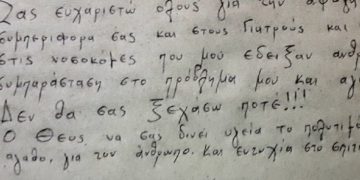 Σας ευχαριστώ όλους για την
συμπεριφορα σας και στους Γιατρούς και
στις νοσοκόμες που μού έδειξαν ανθρ
συμπαράσταση στο πρόβλημα μου και αγ
Δεν θα σας ξεχάσω ποτέ!!!
Ο Θεος να σας δινει υγεία το πολυτιμό
αγαθο, για τον άνθρωπο. Και ευτυχία στο σπιτι